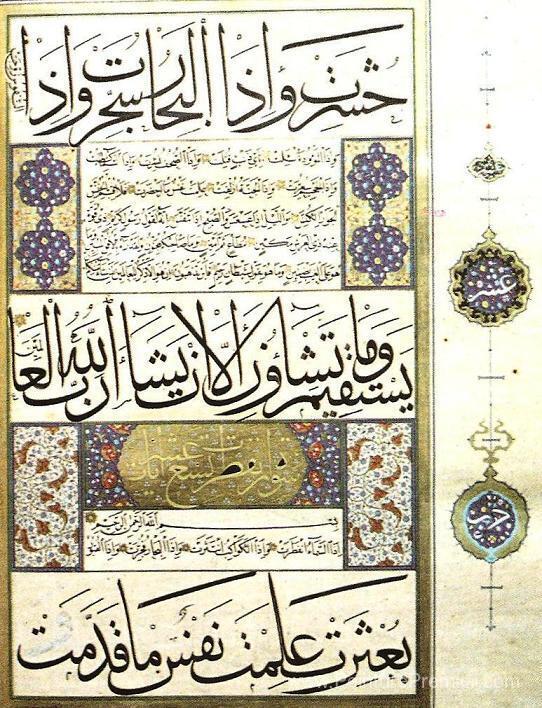 حُشِرَتْ وَاِذَا الْبِحَارُ سُجِّرَتْ وَاِذَا
النفوس زوجت
واذا الموءودة سئلت باي ذنب قتلت واذا الصحف نشرت واذا السماء كشطت
واذا الجحيم سعرت واذا الجنة ازلفت علمت نفس ما احضرت فلا اقسم بالخنس
الجوار الكنس والليل اذا عسعس والصبح اذا تنفس انه لقول رسول كريم ذي قوة
عند ذي العرش مكين مطاع ثم امين وما صاحبكم بمجنون ولقد رآه بالافق المبين
وما هو على الغيب بضنين وما هو بقول شيطان رجيم فاين تذهبون ان هو الا ذكر للعالمين لمن شاء منكم ان
عشر
يَسْتَقِيمَ وَمَا تَشَاؤُنَ اِلَّا اَنْ يَشَاءَ اللّٰهُ رَبُّ الْعَالَمِينَ
سورة انفطرت تسع عشر
بسم الله الرحمن الرحيم
اذا السماء انفطرت واذا الكواكب انتثرت واذا البحار فجرت واذا القبور
حزب
بُعْثِرَتْ عَلِمَتْ نَفْسٌ مَا قَدَّمَتْ